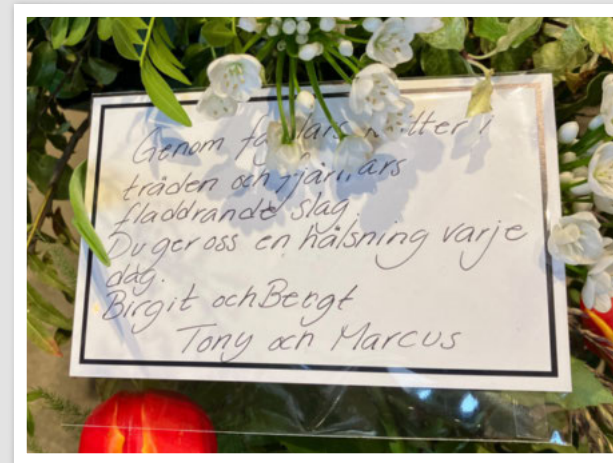 Genom fåglars kvitter i
träden och fjärilars
fladdrande slag.
Du ger oss en hälsning varje
dag.
Birgit och Bengt
Tony och Marcus